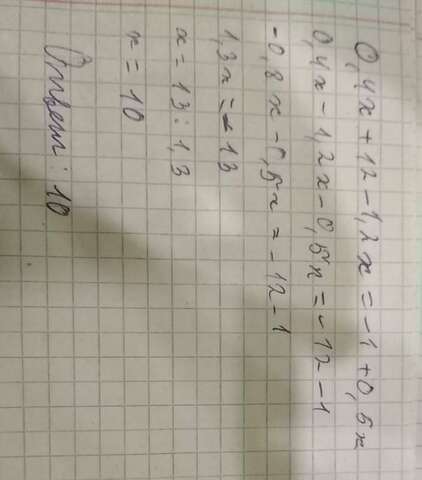 0,4x + 12 - 1,2x = -1 + 0,5x
0,4x - 1,2x - 0,5x = -12 - 1
-0,8x - 0,5x = -12 - 1
1,3x = 13
x = 13 : 1,3
x = 10
Ответ: 10